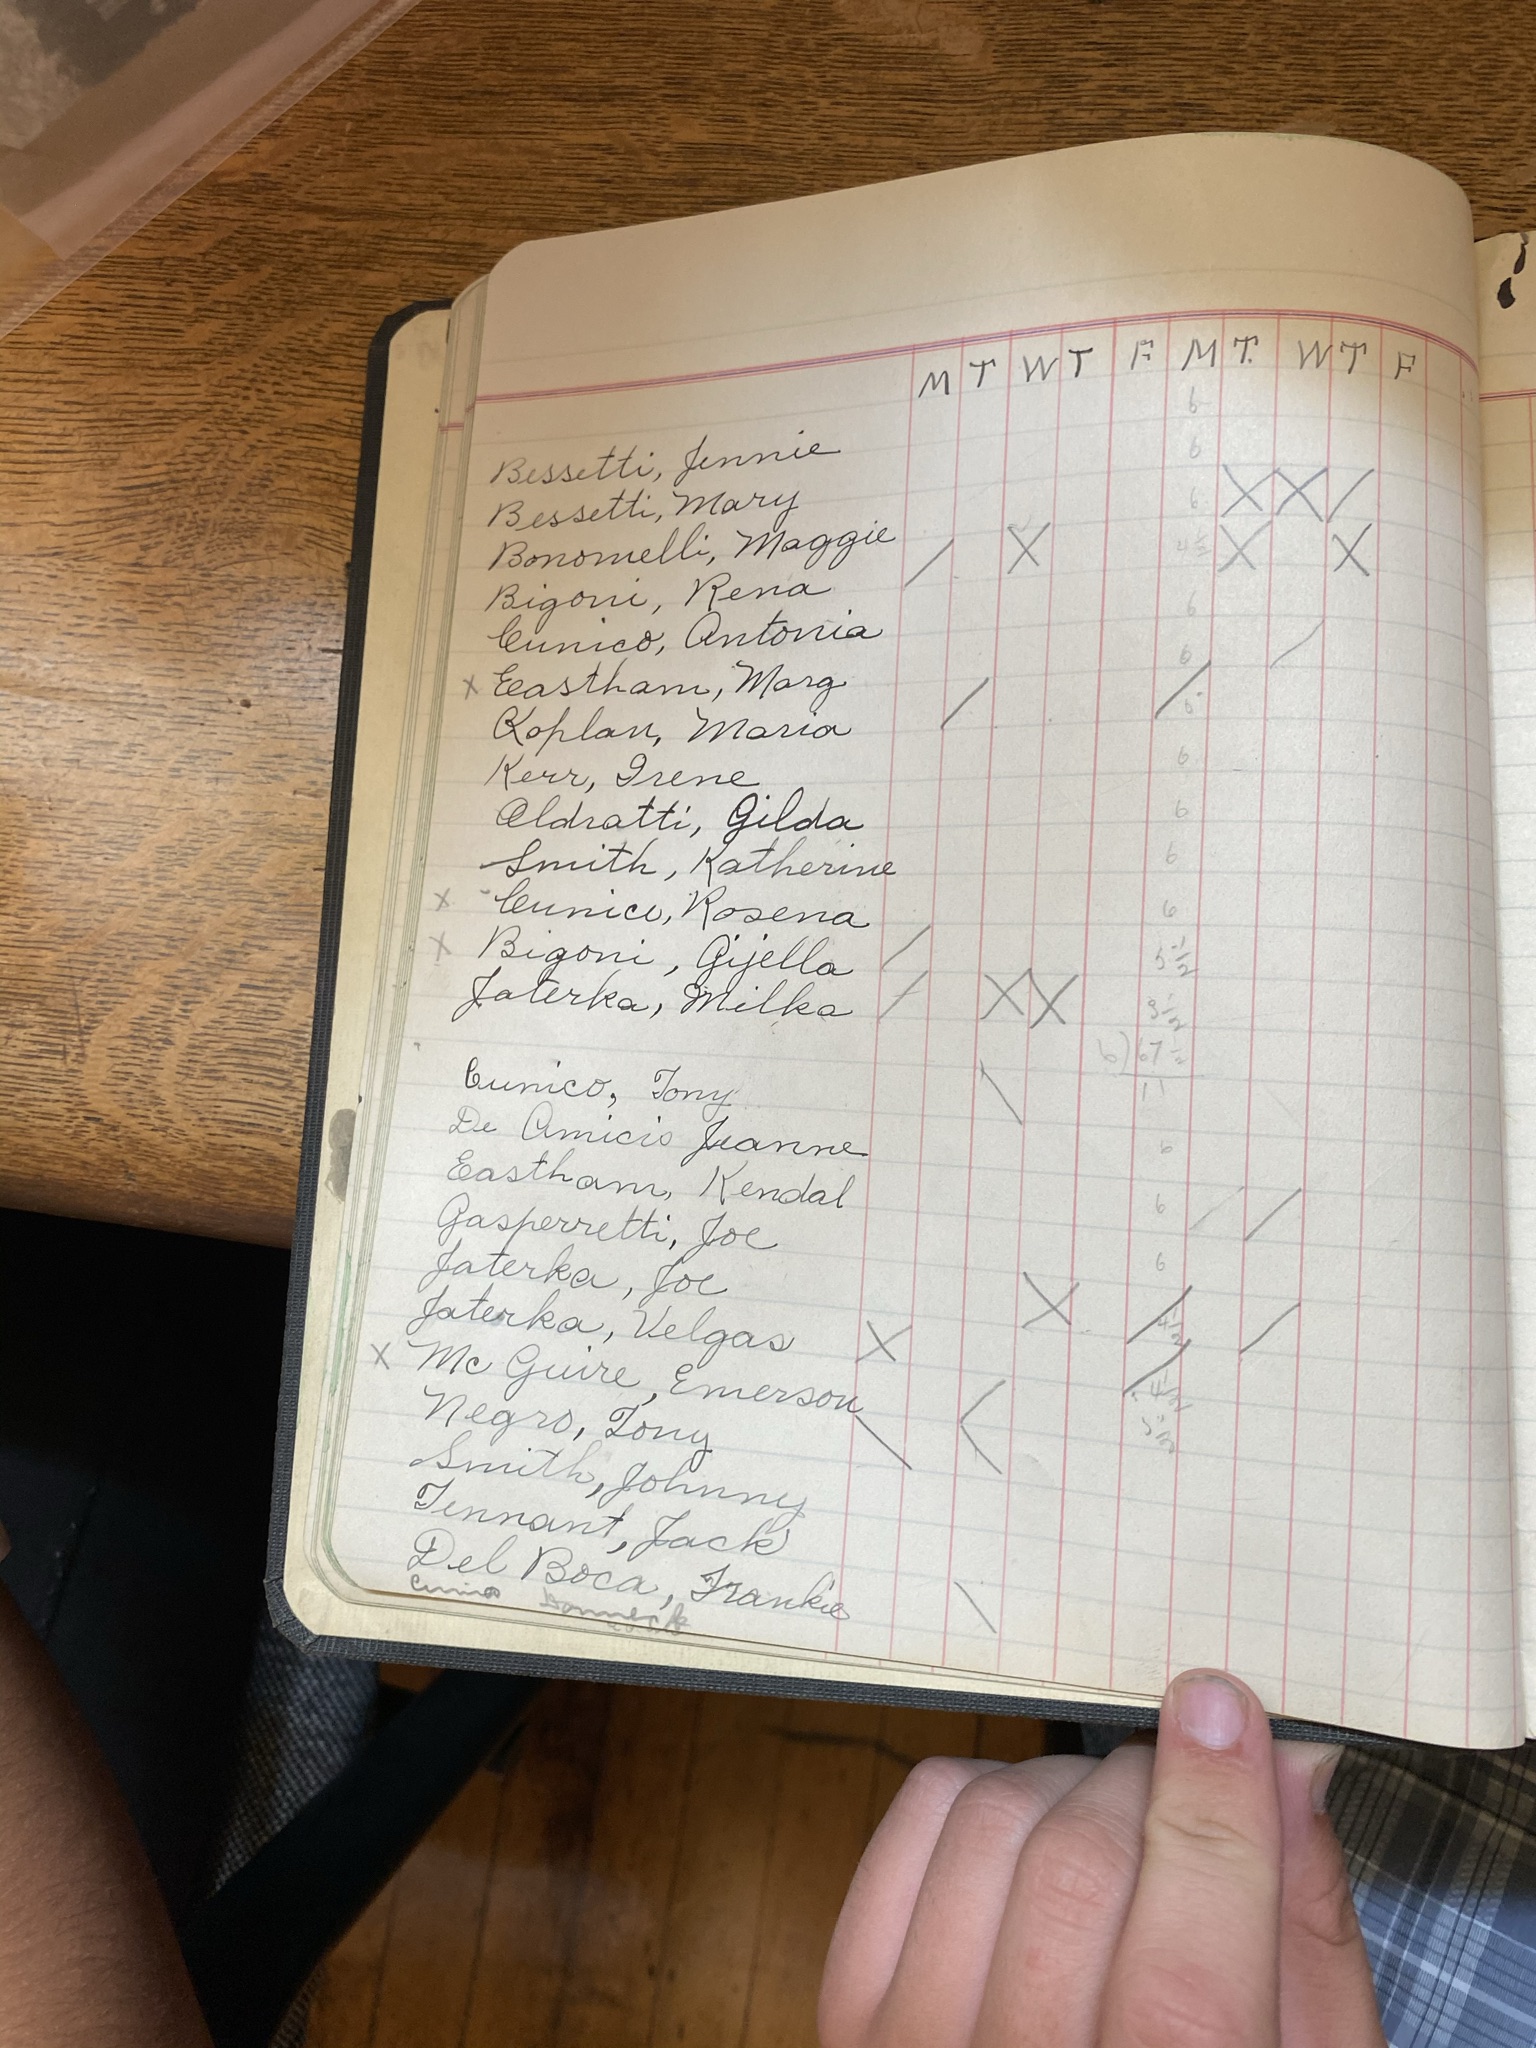 M T W T F M T. W T F
6
Bessetti, Jennie 6
Bessetti, Mary 6
Bonomelli, Maggie 4½
Bigoni, Rena 6
Cunico, Antonia 6
x Eastham, Marg
Koplan, Maria 6
Kerr, Irene 6
Aldratti, Gilda 6
Smith, Katherine 6
x Cunico, Rosena 5½
x Bigoni, Gijella
Jaterka, Milka
6)67
11
Cunico, Tony
De Amicis Jeanne 6
Eastham, Kendal 6
Gasperretti, Joe 6
Jaterka, Joe
Jaterka, Velgas
x Mc Guire, Emerson
Negro, Tony
Smith, Johnny
Tennant, Jack
Del Boca, Frankie
Cunico